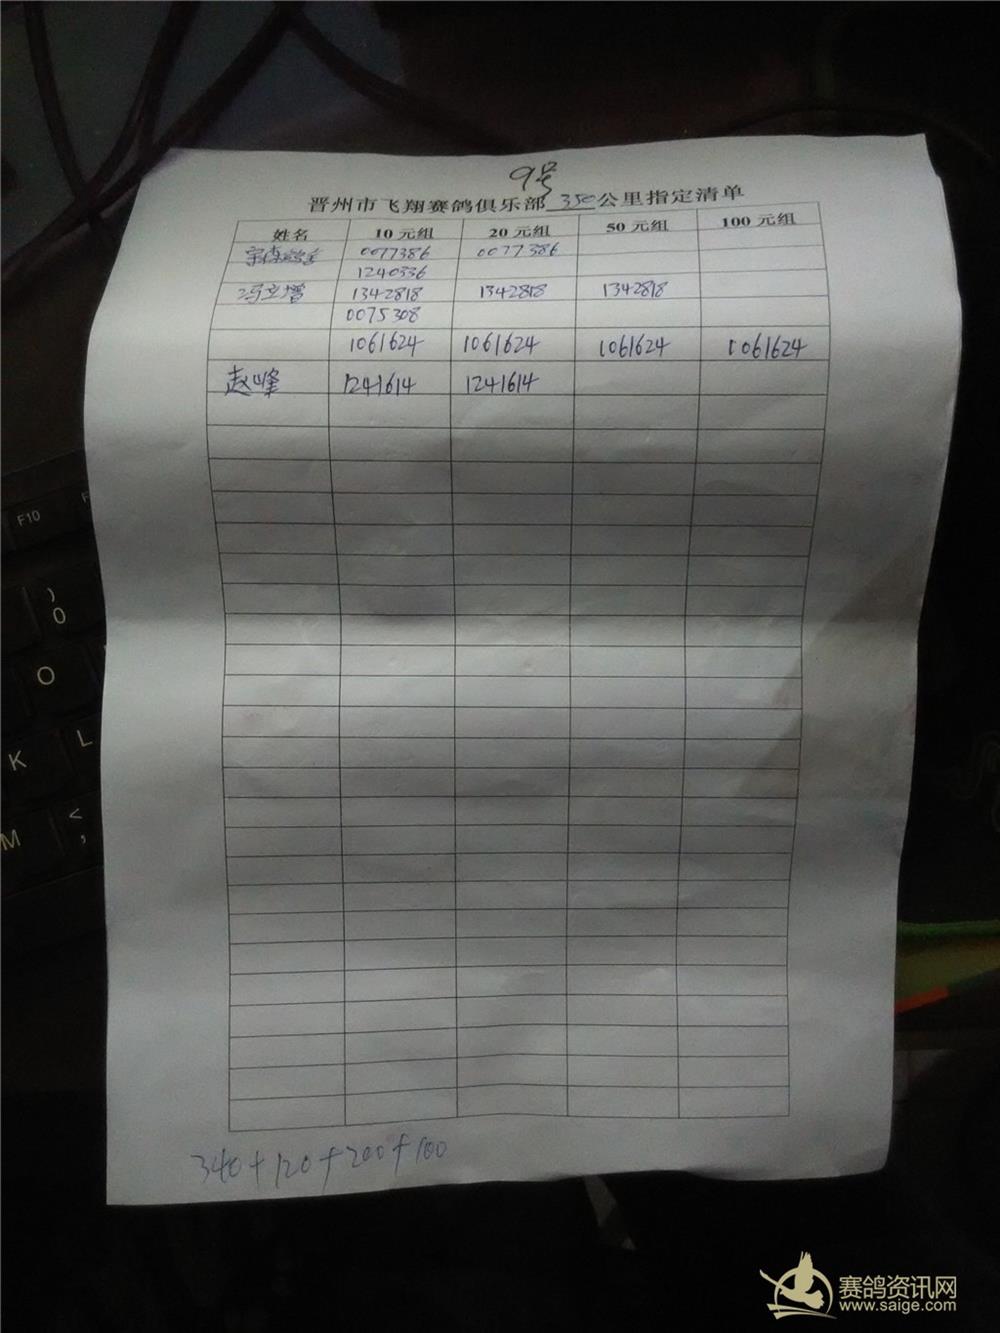 9号
晋州市飞翔赛鸽俱乐部 350 公里指定清单
姓名 10 元组 20 元组 50 元组 100 元组
0077386 0077386
1240336
冯立增 1342818 1342818 1342818
0075308
1061624 1061624 1061624 1061624
赵峰 1241614 1241614
340+120+200+100
F10
F
)
0
O
K
L
M
<
,
赛鸽资讯网
www.saige.com